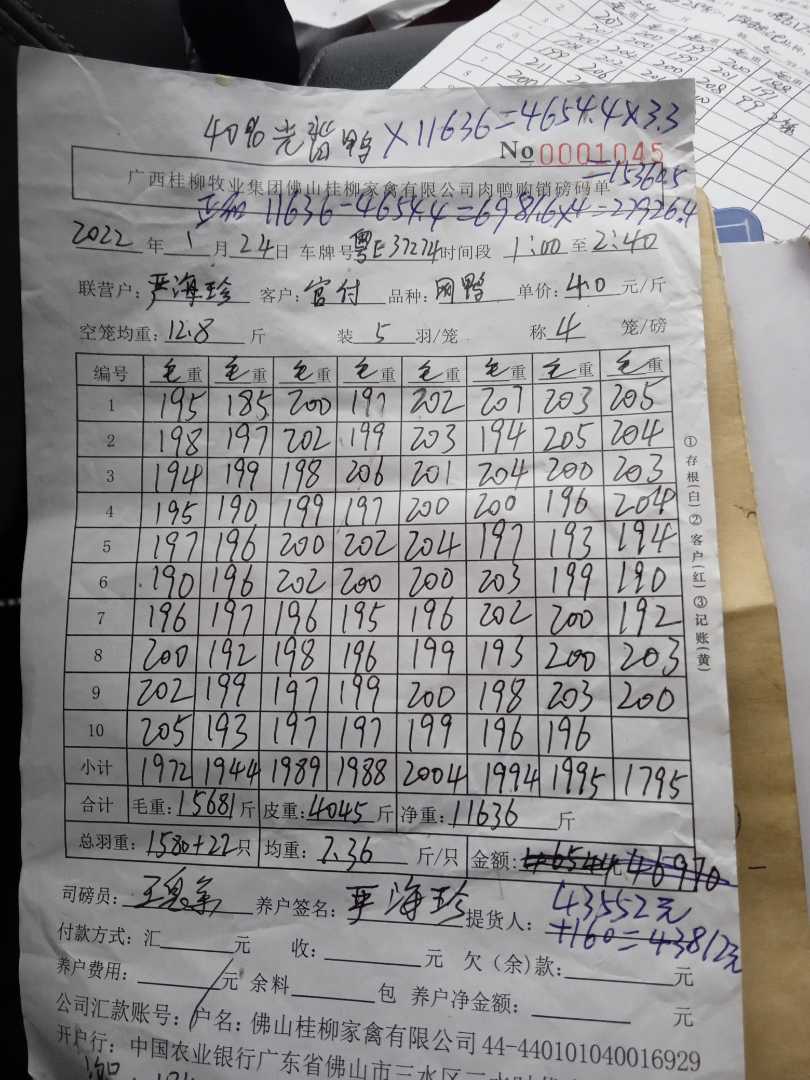 40% 光 鸭 × 11636 = 4654.4 × 3.3
No 0001045
= 15360.5
广西桂柳牧业集团佛山桂柳家禽有限公司肉鸭购销磅码单
11636 - 4654.4 = 6981.6 × 4 = 27926.4
2022 年 1 月 24 日 车牌号 粤E37274 时间段 1:00 至 2:40
联营户: 严海珍 客户: 官付 品种: 肉鸭 单价: 4.0 元/斤
空笼均重: 12.8 斤 装 5 羽/笼 称 4 笼/磅
编号 毛重 毛重 毛重 毛重 毛重 毛重 毛重 毛重
1 195 185 200 197 202 207 203 205
2 198 197 202 199 203 194 205 204
3 194 199 198 206 201 204 200 203
4 195 190 199 197 200 200 196 204
5 197 196 200 202 204 197 193 194
6 190 196 202 200 200 203 199 190
7 196 197 196 195 196 202 200 192
8 200 192 198 196 199 193 200 203
9 202 199 197 199 200 198 203 200
10 205 193 197 197 199 196 196
小计 1972 1944 1989 1988 2004 1994 1995 1795
合计 毛重: 15681 斤 皮重: 4045 斤 净重: 11636 斤
总羽重: 1580+22 只 均重: 7.36 斤/只 金额: 46544 元 46970
司磅员: 养户签名: 严海珍 提货人: 43552元
+160 = 43812元
付款方式: 汇 元 收: 元 欠(余)款: 元
养户费用: 元 余料 包 养户净金额: 元
公司汇款账号: 户名: 佛山桂柳家禽有限公司 44-440101040016929
开户行: 中国农业银行广东省佛山市三水区
①存根(白)②客户(红)③记账(黄)